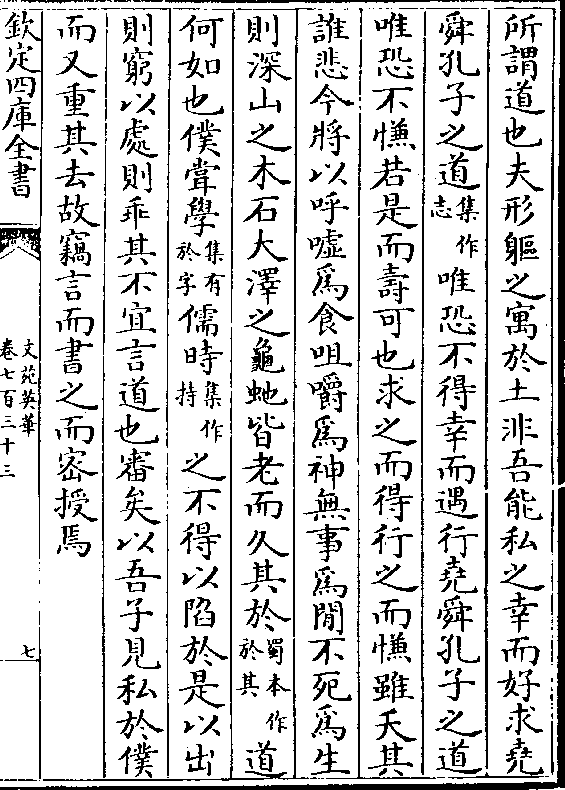 所謂道也夫形軀之寓於土非吾能私之幸而好求堯
舜孔子之道集作志唯恐不得幸而遇行堯舜孔子之道
唯恐不慊若是而壽可也求之而得行之而慊雖夭其
誰悲今將以呼噓爲食咀嚼爲神無事爲閒不死爲生
則深山之木石大澤之龜虵皆老而久其於蜀本作於其道
何如也僕嘗學集有於字儒時集作持之不得以陷於是以出
則窮以處則乖其不宜言道也審矣以吾子見私於僕
而又重其去故竊言而書之而密授焉
欽定四庫全書
文苑英華
卷七百三十三
七